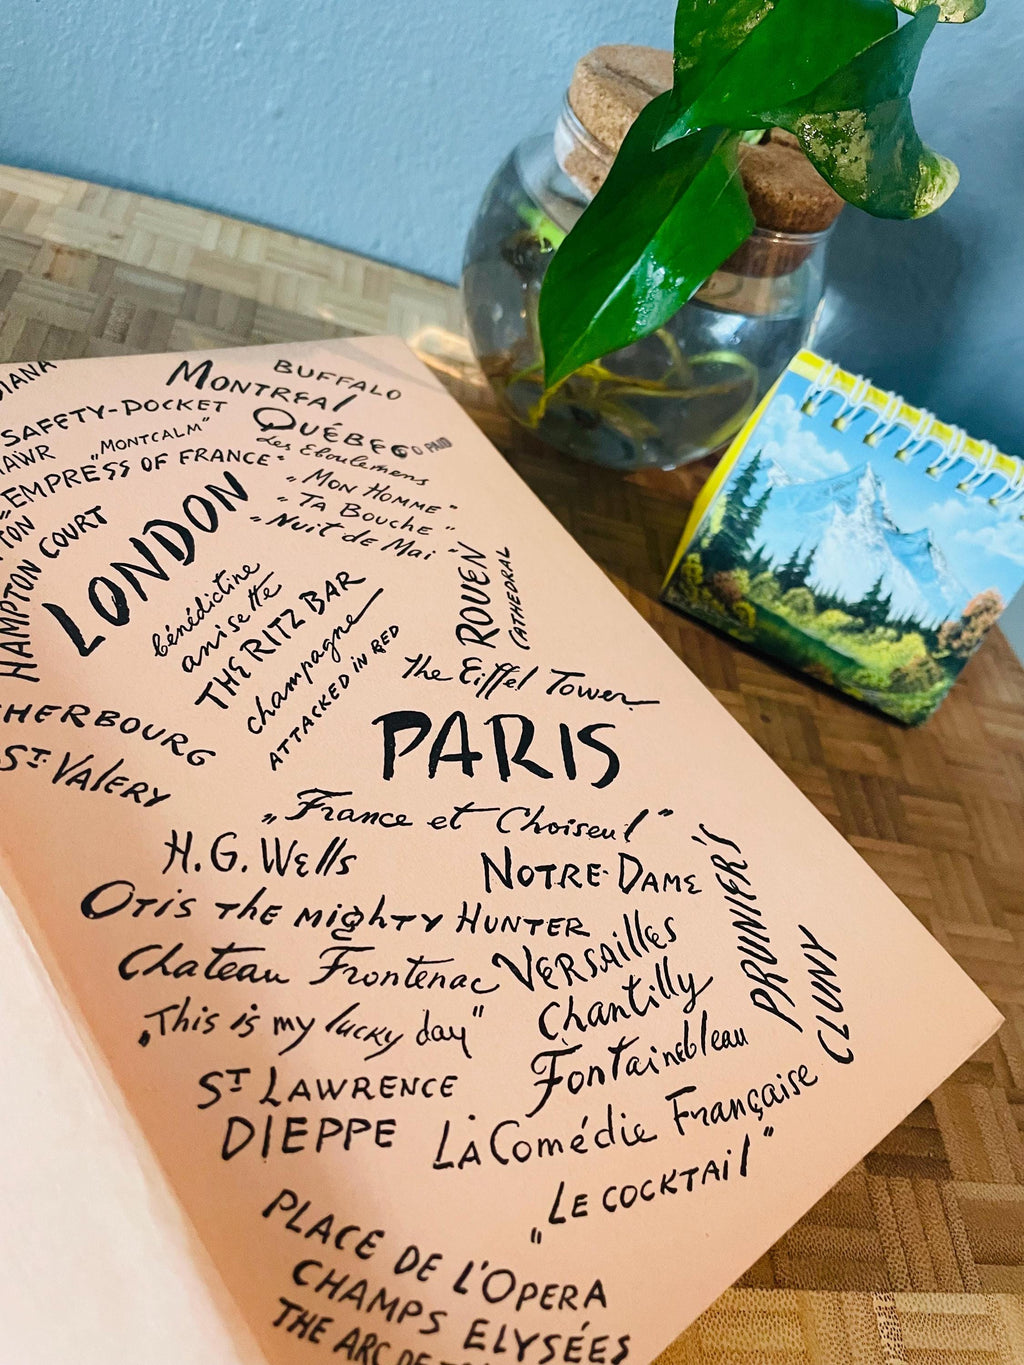 BUFFALO
MONTREAL
SAFETY-POCKET
QUÉBEC
„MONTCALM”
Les Eboulements
„EMPRESS OF FRANCE”
„MON HOMME”
„TA BOUCHE”
„Nuit de Mai”
HAMPTON COURT
LONDON
ROUEN
CATHEDRAL
bénédictine
anisette
THE RITZ BAR
champagne
ATTACKED IN RED
the Eiffel Tower
PARIS
HERBOURG
ST. VALERY
„France et Choiseul”
H.G. Wells
NOTRE-DAME
PRUNIER'S
OTIS THE MIGHTY HUNTER
VERSAILLES
Chateau Frontenac
Chantilly
CLUNY
„This is my lucky day”
Fontainebleau
ST LAWRENCE
DIEPPE
LA Comédie Française
„LE COCKTAIL”
PLACE DE L'OPERA
CHAMPS ELYSÉES
THE ARC DE